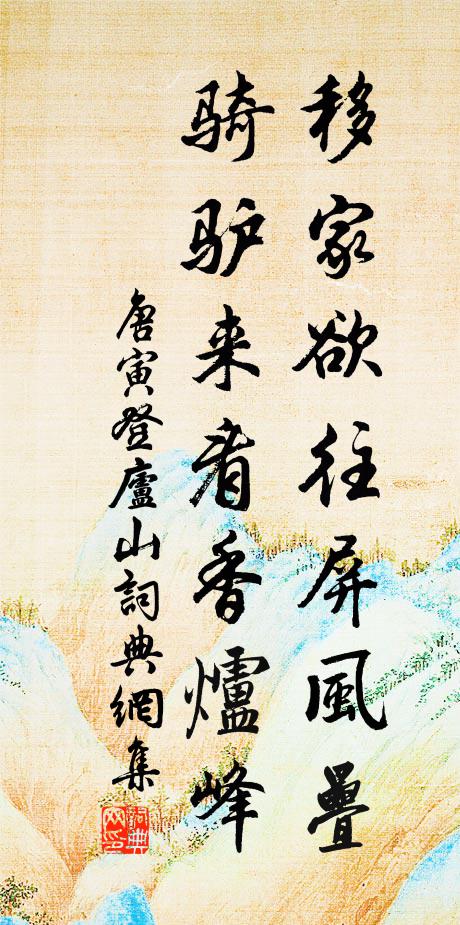 移家欲往屏風疊
骑驴来看香爐峰
唐寅登廬山詞典網集
詞典网印